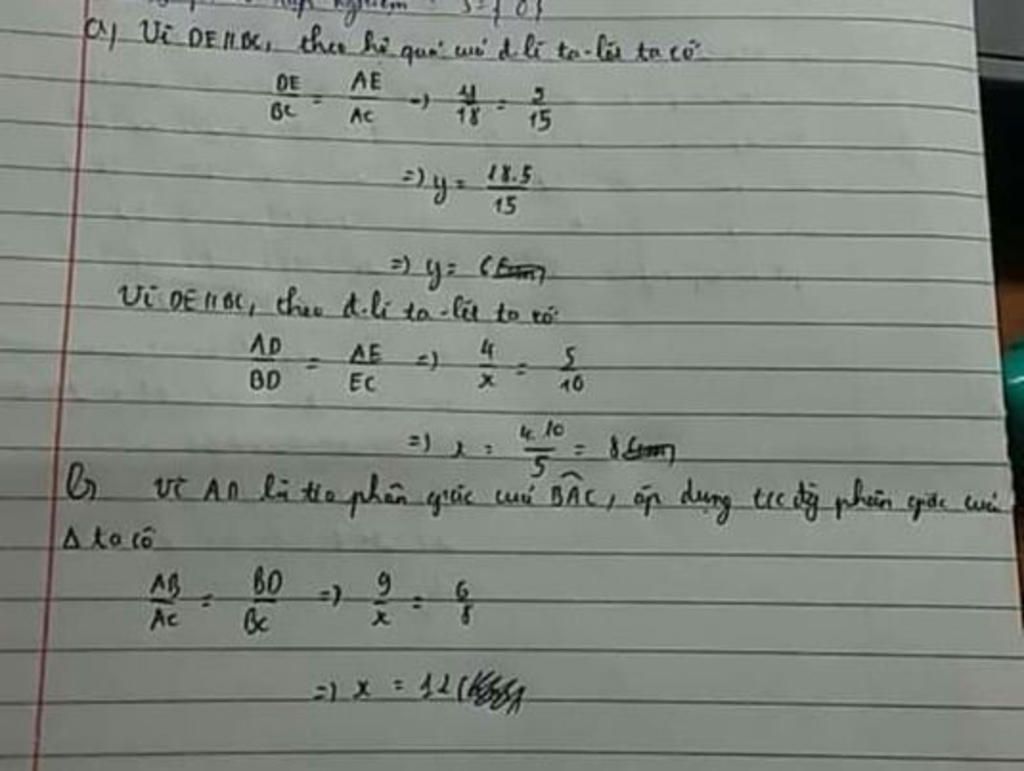 nghiệm S={0}
a, Vì DE//BC, theo hệ quả củả đ.lí ta-lét ta có
DE/BC = AE/AC => y/18 = 5/15
=> y = 18.5/15
=> y = 6
Vì DE//BC, theo đ.lí ta-lét ta có
AD/BD = AE/EC => 4/x = 5/10
=> x = 4.10/5 = 8
b, Vì AD là tia phân giác củả BAC, áp dụng t/c đg phân giác củả
Δ ta có
AB/AC = BD/BC => 9/x = 6/8
=> x = 12